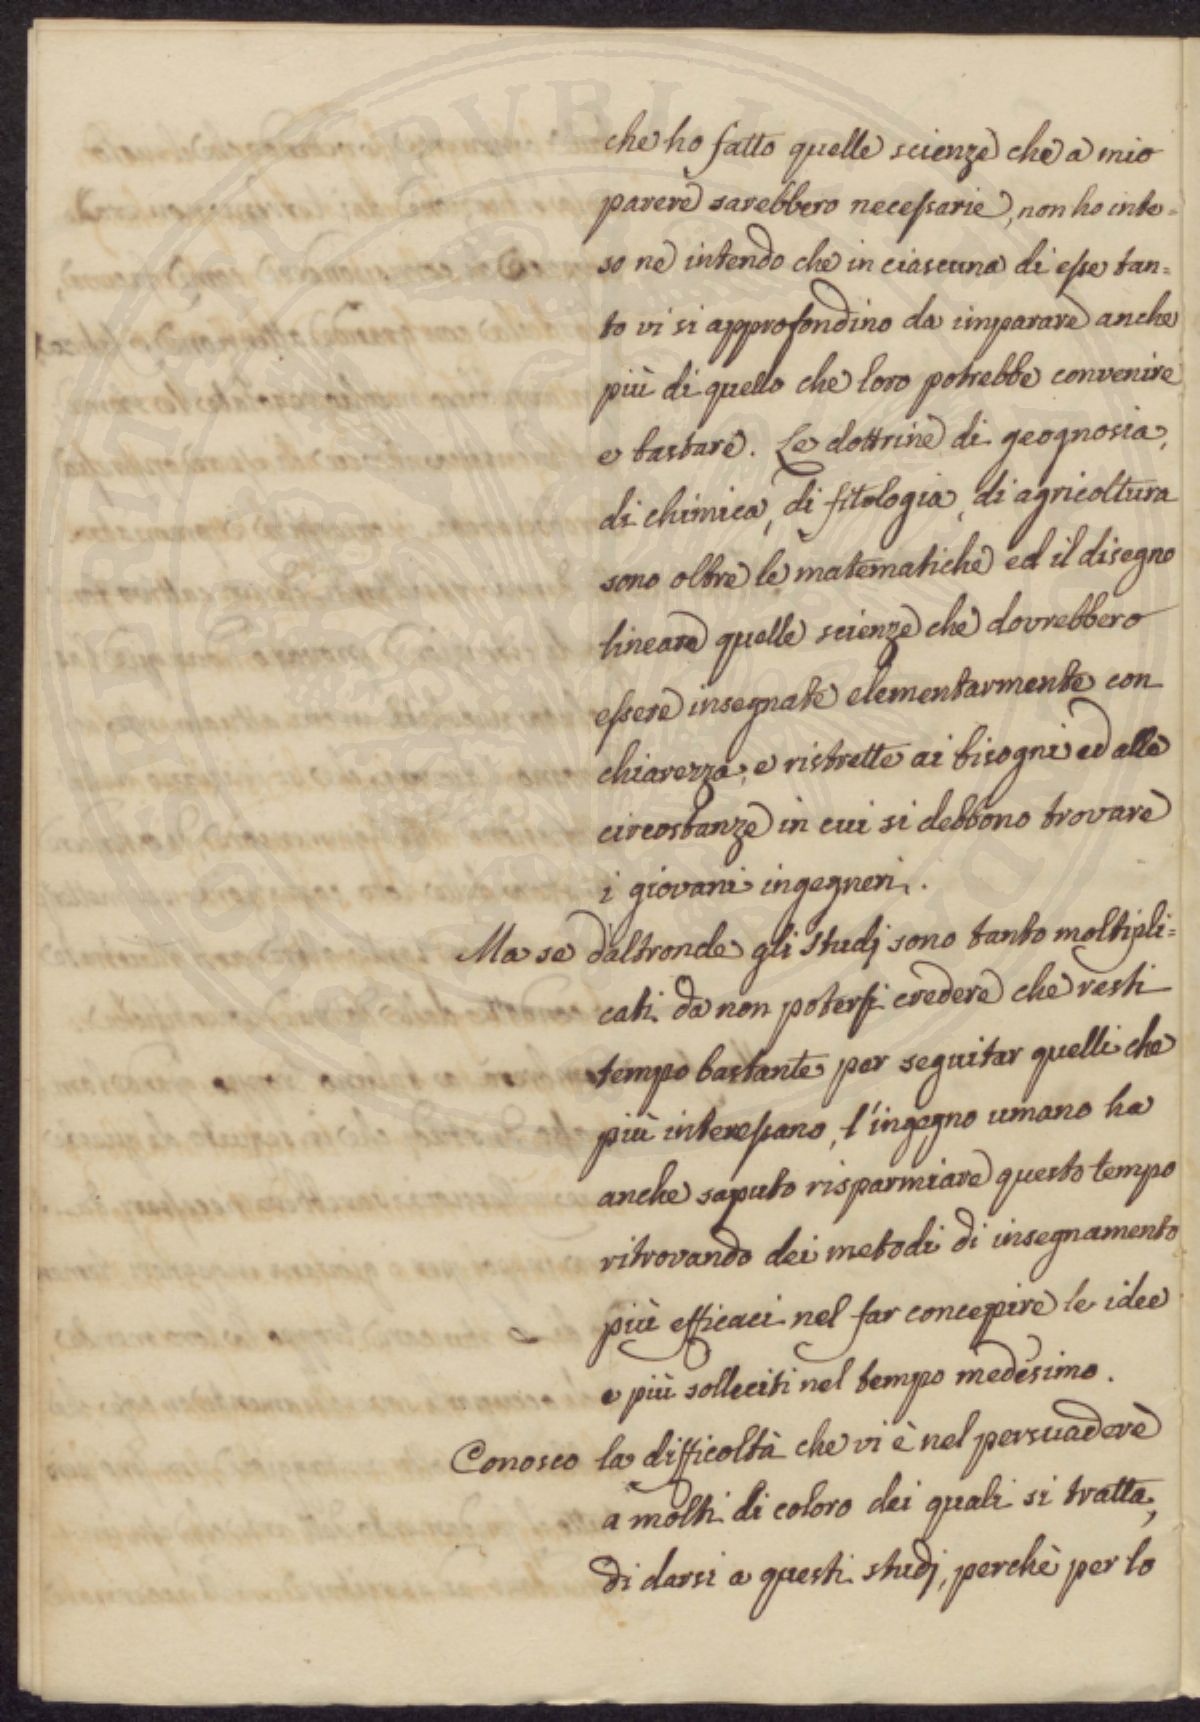 che ho fatto quelle scienze che a mio
parere sarebbero necessarie, non ho inte=
so ne intendo che in ciascuna di esse tan=
to vi si approfondino da imparare anche
più di quello che loro potrebbe convenire
e bastare. Le dottrine di geognosia,
di chimica, di fitologia, di agricoltura
sono oltre le matematiche ed il disegno
lineare quelle scienze che dovrebbero
essere insegnate elementarmente con
chiarezza, e ristrette ai bisogni ed alle
circostanze in cui si debbono trovare
i giovani ingegneri.
Ma se d'altronde gli studj sono tanto moltipli=
cati da non potersi credere che resti
tempo bastante per seguitar quelli che
più interessano, l'ingegno umano ha
anche saputo risparmiare questo tempo
ritrovando dei metodi di insegnamento
più efficaci nel far concepire le idee
e più solleciti nel tempo medesimo.
Conosco la difficoltà che vi è nel persuadere
a molti di coloro dei quali si tratta,
di darsi a questi studj, perchè per lo